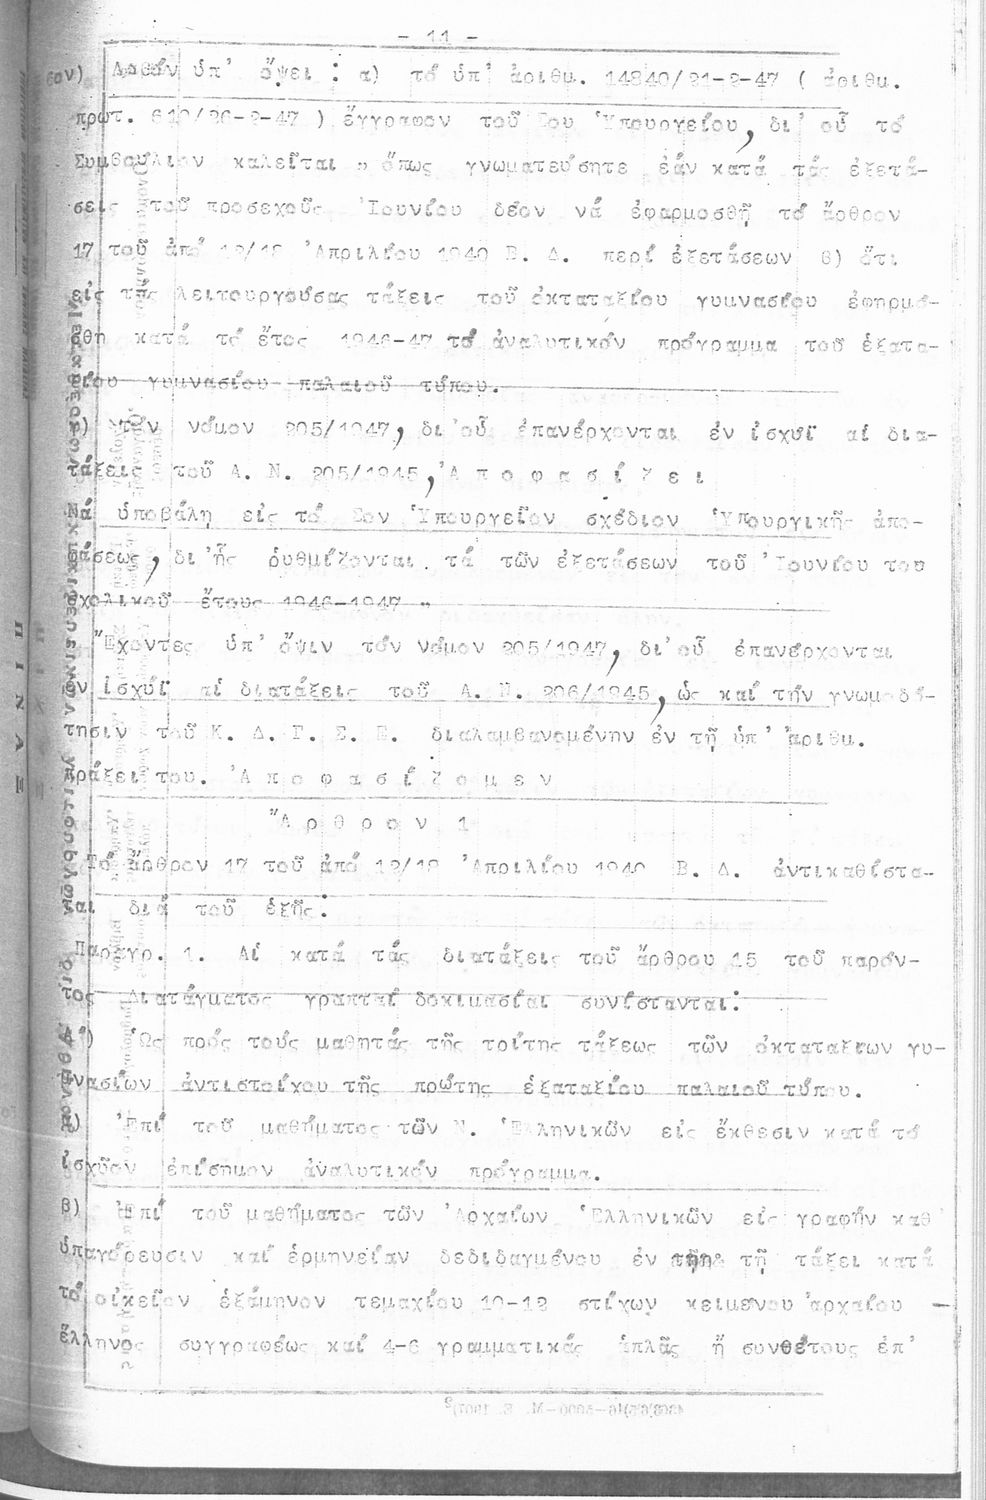 - 11 -
6ον) Λαβόν ὑπ' ὄψει : α) τό ὑπ' ἀριθμ. 14840/21-2-47 ( ἀριθμ.
πρωτ. 610/26-2-47 ) ἔγγραφον τοῦ Σου Ὑπουργείου, δι' οὗ τό
Συμβούλιον καλεῖται " ὅπως γνωματεύσητε ἐάν κατά τάς ἐξετά-
σεις τοῦ προσεχοῦς Ἰουνίου δέον νά ἐφαρμοσθῇ τό ἄρθρον
17 τοῦ ἀπό 12/18 Ἀπριλίου 1940 Β. Δ. περί ἐξετάσεων β) ὅτι
εἰς τάς λειτουργούσας τάξεις τοῦ ὀκταταξίου γυμνασίου ἐφηρμό-
σθη κατά τό ἔτος 1946-47 τό ἀναλυτικόν πρόγραμμα τοῦ ἑξατα-
ξίου γυμνασίου παλαιοῦ τύπου.
γ) τόν νόμον 205/1947, δι' οὗ ἐπανέρχονται ἐν ἰσχύϊ αἱ δια-
τάξεις τοῦ Α. Ν. 205/1945, Ἀ π ο φ α σ ί ζ ε ι
Νά ὑποβάλη εἰς τό Σον Ὑπουργεῖον σχέδιον Ὑπουργικῆς ἀπο-
φάσεως, δι' ἧς ρυθμίζονται τά τῶν ἐξετάσεων τοῦ Ἰουνίου του
σχολικοῦ ἔτους 1946-1947 "
Ἔχοντες ὑπ' ὄψιν τόν νόμον 205/1947, δι' οὗ ἐπανέρχονται
ἐν ἰσχύϊ αἱ διατάξεις τοῦ Α. Ν. 206/1945, ὡς καί τήν γνωμοδό-
τησιν τοῦ Κ. Δ. Γ. Σ. Ε. διαλαμβανομένην ἐν τῇ ὑπ' ἀριθμ.
πράξει του. Ἀ π ο φ α σ ί ζ ο μ ε ν
Ἄ ρ θ ρ ο ν 1
Τό ἄρθρον 17 τοῦ ἀπό 12/18 Ἀπριλίου 1940 Β. Δ. ἀντικαθίστα-
ται διά τοῦ ἑξῆς:
Παράγρ. 1. Αἱ κατά τάς διατάξεις τοῦ ἄρθρου 15 τοῦ παρόν-
τος Διατάγματος γραπταί δοκιμασίαι συνίστανται:
Α') Ὡς πρός τούς μαθητάς τῆς τρίτης τάξεως τῶν ὀκταταξίων γυ-
μνασίων ἀντιστοίχου τῆς πρώτης ἑξαταξίου παλαιοῦ τύπου.
α) Ἐπί τοῦ μαθήματος τῶν Ν. Ἑλληνικῶν εἰς ἔκθεσιν κατά τό
ἰσχῦον ἐπίσημον ἀναλυτικόν πρόγραμμα.
β) Ἐπί τοῦ μαθήματος τῶν Ἀρχαίων Ἑλληνικῶν εἰς γραφήν καθ'
ὑπαγόρευσιν καί ἑρμηνείαν δεδιδαγμένου ἐν τῇ τάξει κατά
τό οἰκεῖον ἑξάμηνον τεμαχίου 10-12 στίχων κειμένου ἀρχαίου
ἕλληνος συγγραφέως καί 4-6 γραμματικάς ἁπλᾶς ἤ συνθέτους ἐπ'